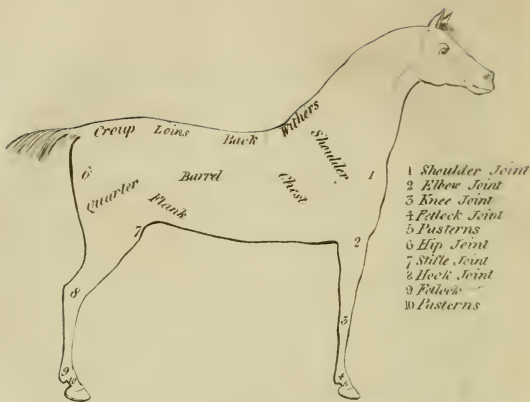 Croup Loins Back Withers
Shoulder
Barrel
Chest
Quarter
Flank
6
1
7
2
8
3
9
10
4
5
1 Shoulder Joint
2 Elbow Joint
3 Knee Joint
4 Fetlock Joint
5 Pasterns
6 Hip Joint
7 Stifle Joint
8 Hock Joint
9 Fetlock
10 Pasterns